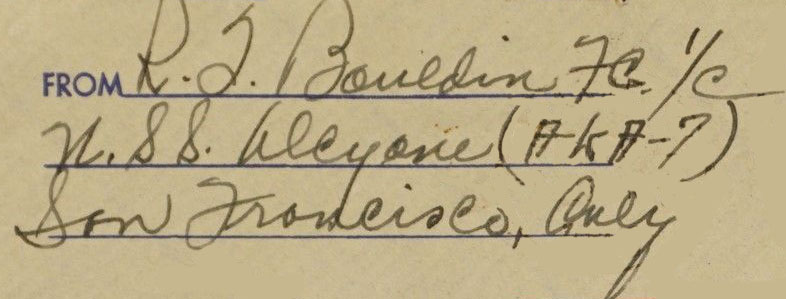 FROM R. T. Bouldin FC. 1/c
U.S.S. Alcyone (AKA-7)
San Francisco, Caly